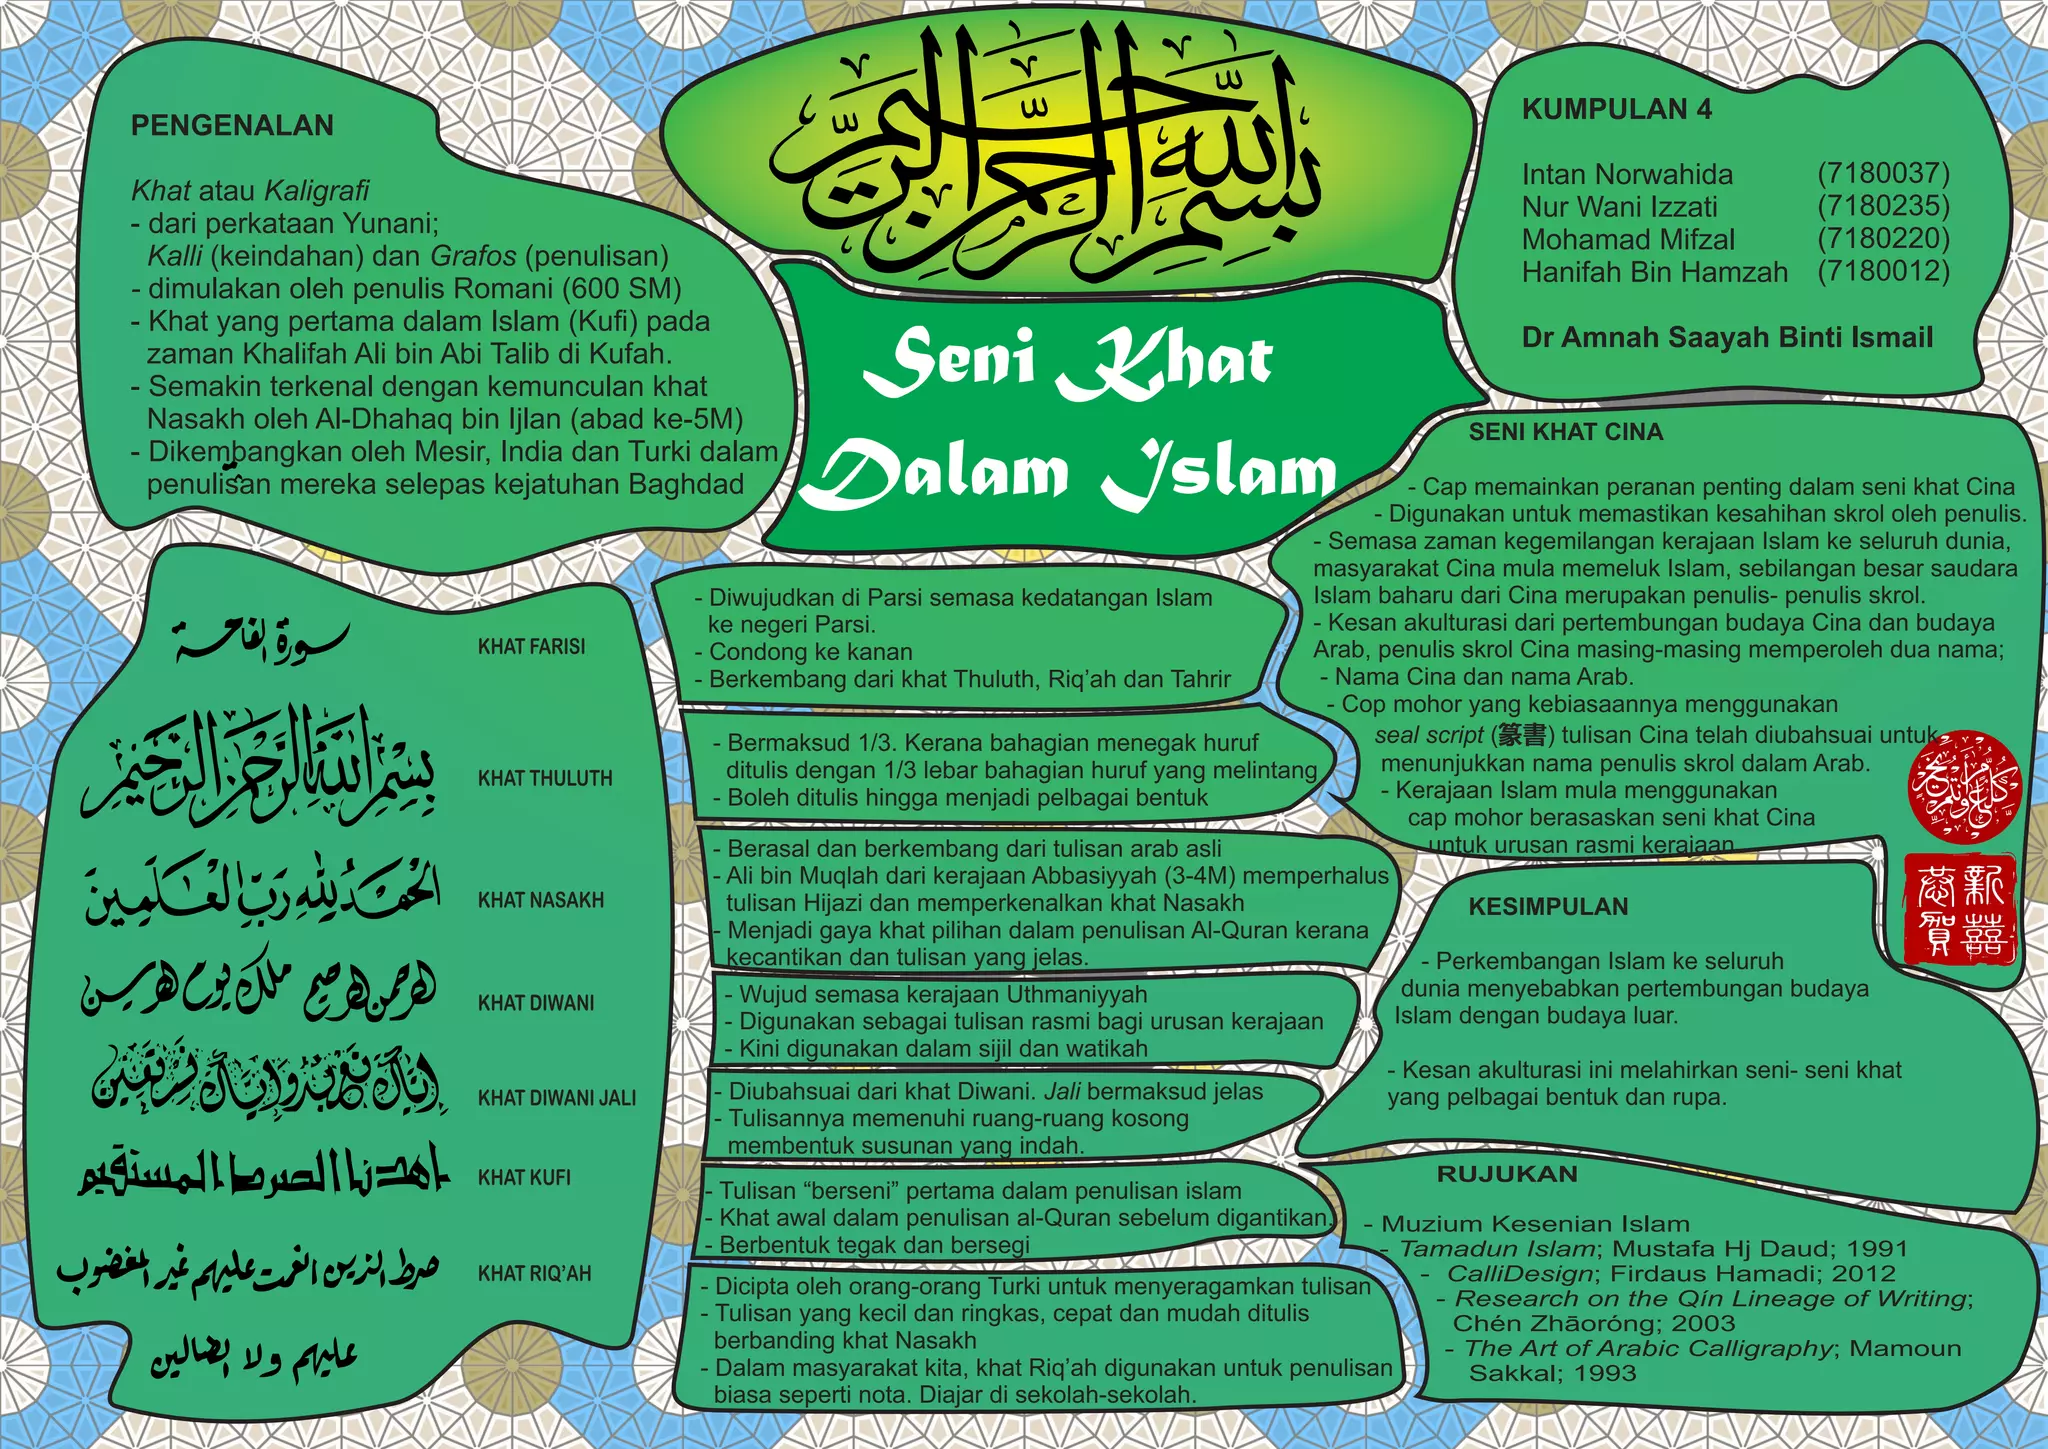 بسم الله الرحمن الرحيم
Seni Khat
Dalam Islam
PENGENALAN
Khat atau Kaligrafi
- dari perkataan Yunani;
Kalli (keindahan) dan Grafos (penulisan)
- dimulakan oleh penulis Romani (600 SM)
- Khat yang pertama dalam Islam (Kufi) pada
zaman Khalifah Ali bin Abi Talib di Kufah.
- Semakin terkenal dengan kemunculan khat
Nasakh oleh Al-Dhahaq bin Ijlan (abad ke-5M)
- Dikembangkan oleh Mesir, India dan Turki dalam
penulisan mereka selepas kejatuhan Baghdad
KUMPULAN 4
Intan Norwahida (7180037)
Nur Wani Izzati (7180235)
Mohamad Mifzal (7180220)
Hanifah Bin Hamzah (7180012)
Dr Amnah Saayah Binti Ismail
سورة الفاتحة
KHAT FARISI
- Diwujudkan di Parsi semasa kedatangan Islam
ke negeri Parsi.
- Condong ke kanan
- Berkembang dari khat Thuluth, Riq’ah dan Tahrir
بِسْمِ اللَّهِ الرَّحْمَنِ الرَّحِيمِ
KHAT THULUTH
- Bermaksud 1/3. Kerana bahagian menegak huruf
ditulis dengan 1/3 lebar bahagian huruf yang melintang
- Boleh ditulis hingga menjadi pelbagai bentuk
الْحَمْدُ لِلَّهِ رَبِّ الْعَٰلَمِينَ
KHAT NASAKH
- Berasal dan berkembang dari tulisan arab asli
- Ali bin Muqlah dari kerajaan Abbasiyyah (3-4M) memperhalus
tulisan Hijazi dan memperkenalkan khat Nasakh
- Menjadi gaya khat pilihan dalam penulisan Al-Quran kerana
kecantikan dan tulisan yang jelas.
الرحمن الرحيم ملك يوم الدين
KHAT DIWANI
- Wujud semasa kerajaan Uthmaniyyah
- Digunakan sebagai tulisan rasmi bagi urusan kerajaan
- Kini digunakan dalam sijil dan watikah
KHAT DIWANI JALI
- Diubahsuai dari khat Diwani. Jali bermaksud jelas
- Tulisannya memenuhi ruang-ruang kosong
membentuk susunan yang indah.
اهدنا الصرط المستقيم
KHAT KUFI
- Tulisan “berseni” pertama dalam penulisan islam
- Khat awal dalam penulisan al-Quran sebelum digantikan.
- Berbentuk tegak dan bersegi
صرط الذين انعمت عليهم غير المغضوب
KHAT RIQ’AH
عليهم ولا الضالين
- Dicipta oleh orang-orang Turki untuk menyeragamkan tulisan
- Tulisan yang kecil dan ringkas, cepat dan mudah ditulis
berbanding khat Nasakh
- Dalam masyarakat kita, khat Riq’ah digunakan untuk penulisan
biasa seperti nota. Diajar di sekolah-sekolah.
SENI KHAT CINA
- Cap memainkan peranan penting dalam seni khat Cina
- Digunakan untuk memastikan kesahihan skrol oleh penulis.
- Semasa zaman kegemilangan kerajaan Islam ke seluruh dunia,
masyarakat Cina mula memeluk Islam, sebilangan besar saudara
Islam baharu dari Cina merupakan penulis- penulis skrol.
- Kesan akulturasi dari pertembungan budaya Cina dan budaya
Arab, penulis skrol Cina masing-masing memperoleh dua nama;
- Nama Cina dan nama Arab.
- Cop mohor yang kebiasaannya menggunakan
seal script (篆書) tulisan Cina telah diubahsuai untuk
menunjukkan nama penulis skrol dalam Arab.
- Kerajaan Islam mula menggunakan
cap mohor berasaskan seni khat Cina
untuk urusan rasmi kerajaan
恭 新
賀 禧
KESIMPULAN
- Perkembangan Islam ke seluruh
dunia menyebabkan pertembungan budaya
Islam dengan budaya luar.
- Kesan akulturasi ini melahirkan seni- seni khat
yang pelbagai bentuk dan rupa.
RUJUKAN
- Muzium Kesenian Islam
- Tamadun Islam; Mustafa Hj Daud; 1991
- CalliDesign; Firdaus Hamadi; 2012
- Research on the Qín Lineage of Writing;
Chén Zhāoróng; 2003
- The Art of Arabic Calligraphy; Mamoun
Sakkal; 1993